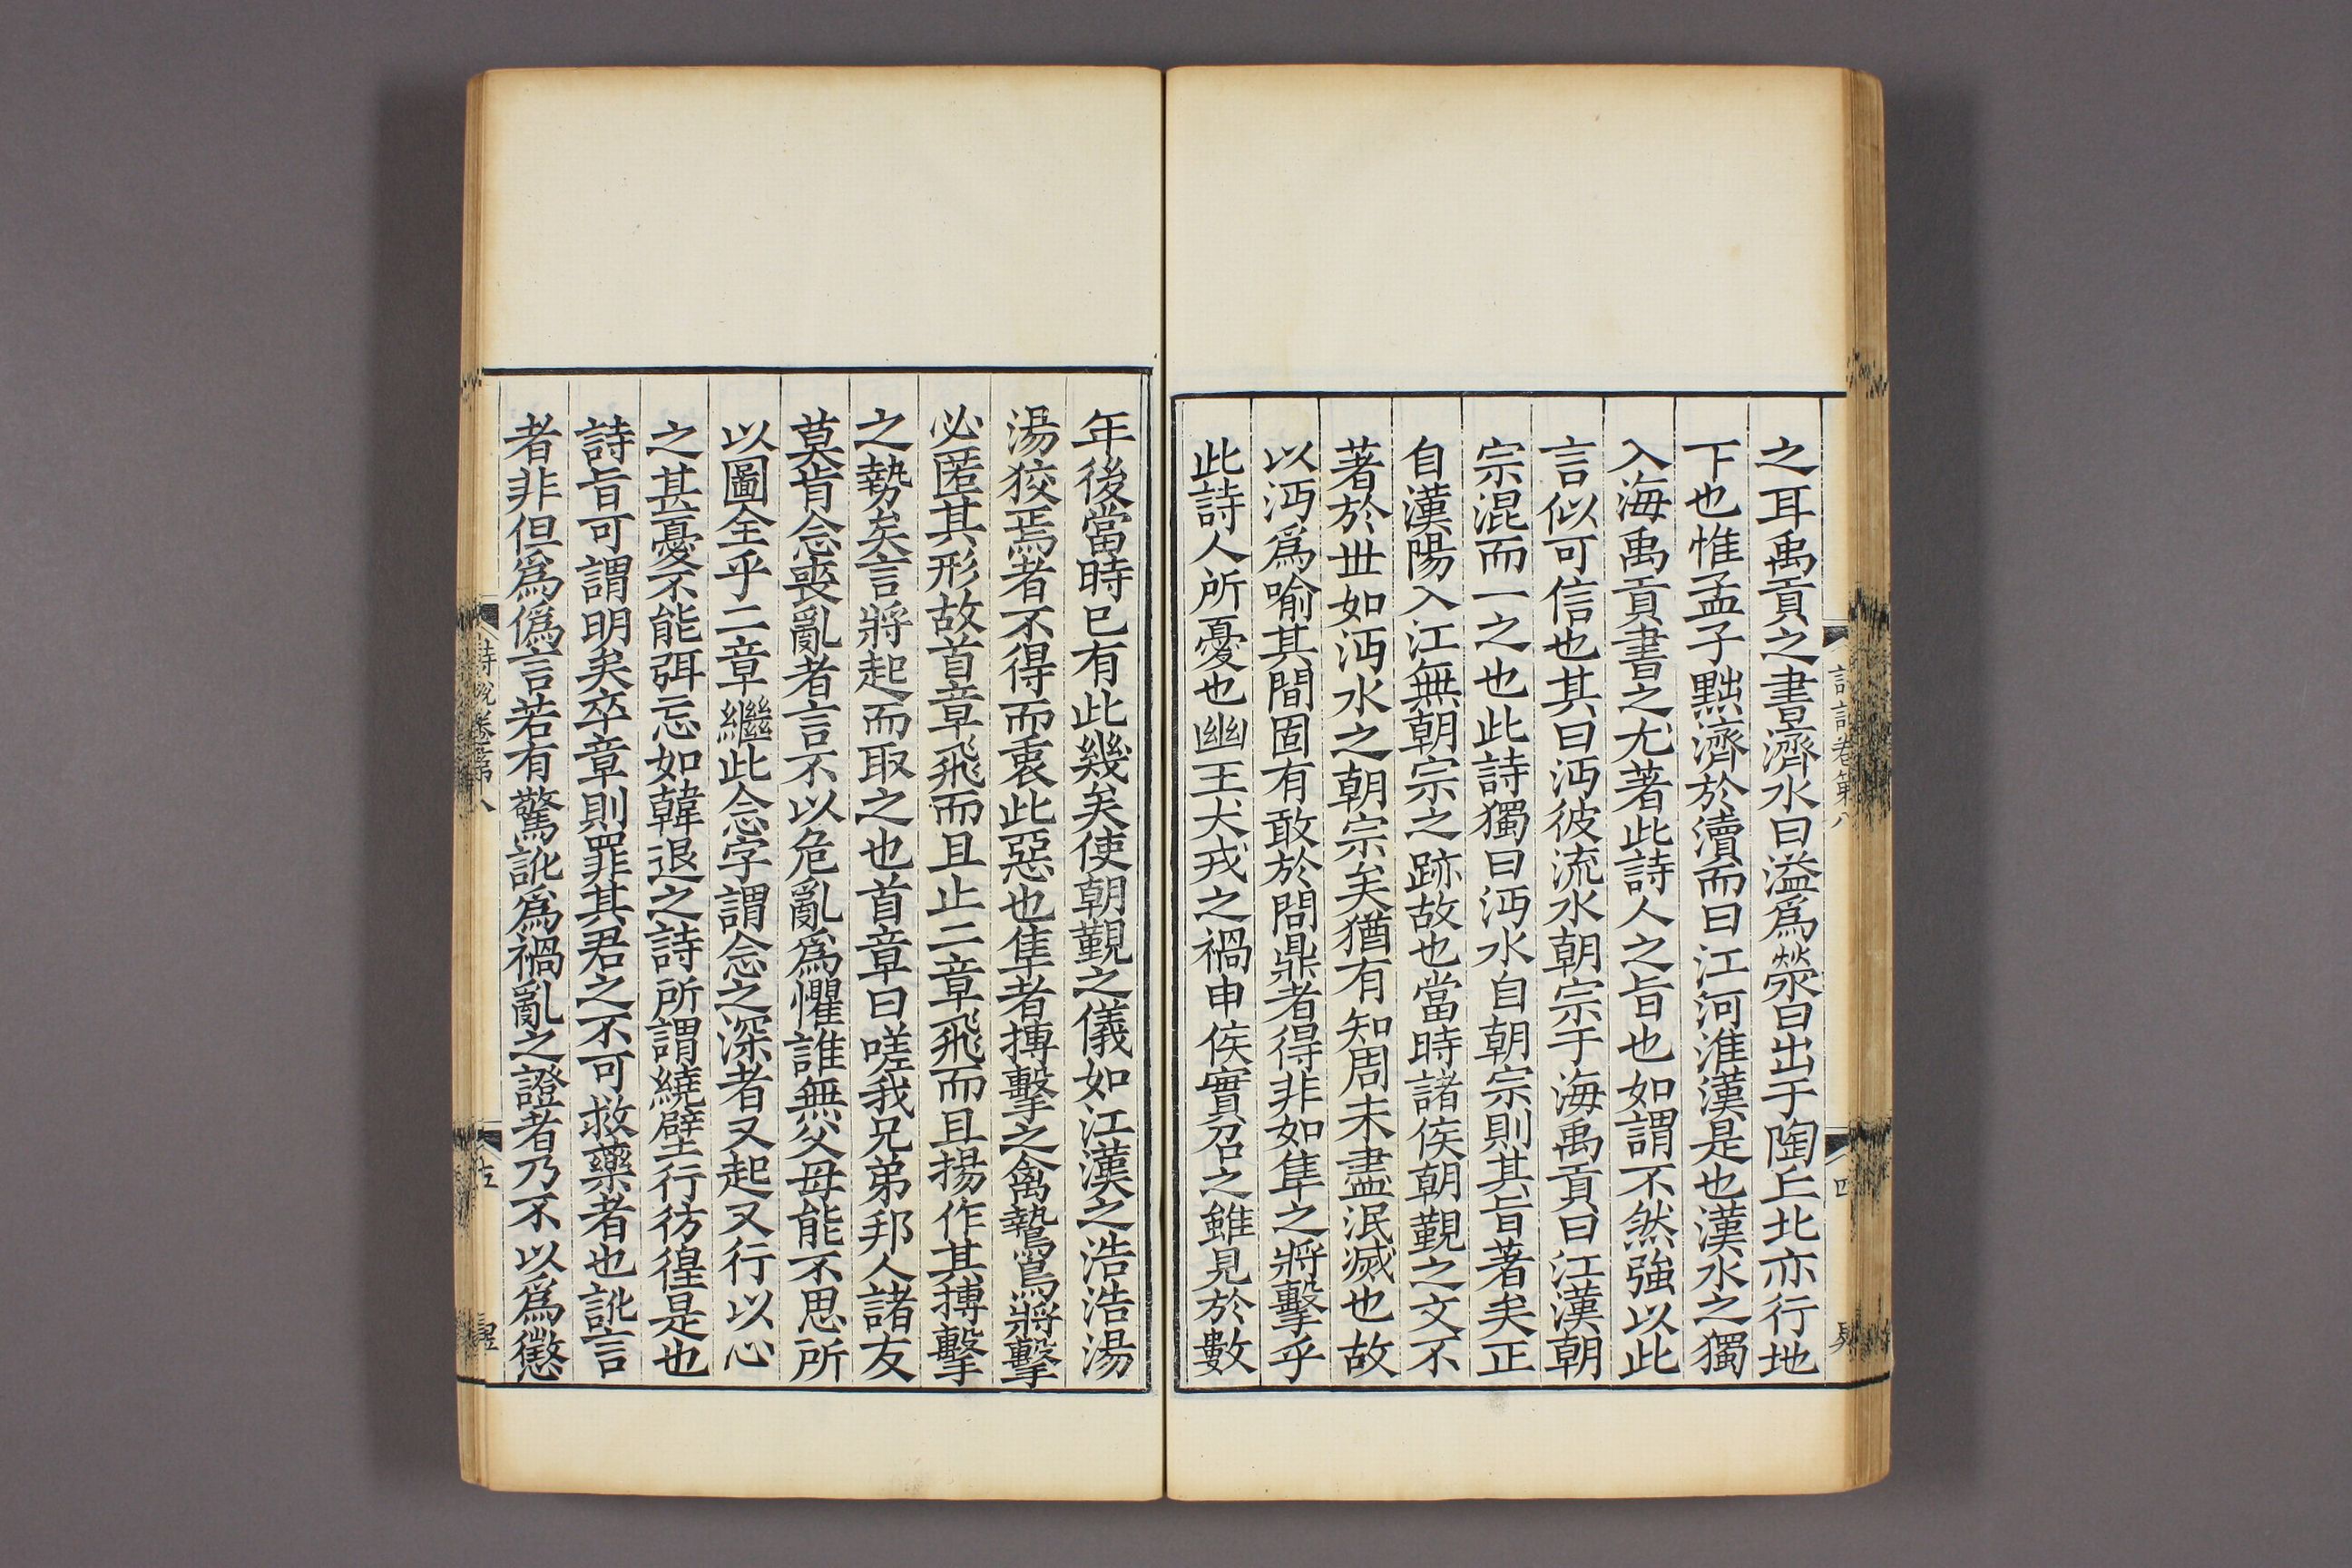 之耳禹貢之書濟水曰溢爲滎曰出于陶丘北亦行地
下也惟孟子黜濟於瀆而曰江河淮漢是也漢水之獨
入海禹貢書之尤著此詩人之旨也如謂不然強以此
言似可信也其曰沔彼流水朝宗于海禹貢曰江漢朝
宗混而一之也此詩獨曰沔水自朝宗則其旨著矣正
自漢陽入江無朝宗之跡故也當時諸侯朝覲之文不
著於丗如沔水之朝宗矣猶有知周未盡泯滅也故
以沔爲喻其間固有敢於問鼎者得非如隼之將擊乎
此詩人所憂也幽王犬戎之禍申侯實召之雖見於數
詩說卷第八
四
年後當時已有此幾矣使朝覲之儀如江漢之浩浩湯
湯狡焉者不得而衷此惡也隼者摶擊之禽鷙鳥將擊
必匿其形故首章飛而且止二章飛而且揚作其摶擊
之勢矣言將起而取之也首章曰嗟我兄弟邦人諸友
莫肯念喪亂者言不以危亂爲懼誰無父母能不思所
以圖全乎二章繼此念字謂念之深者又起又行以心
之甚憂不能弭忘如韓退之詩所謂繞壁行彷徨是也
詩旨可謂明矣卒章則罪其君之不可救藥者也訛言
者非但爲僞言若有驚訛爲禍亂之證者乃不以爲懲
詩說卷第八
五